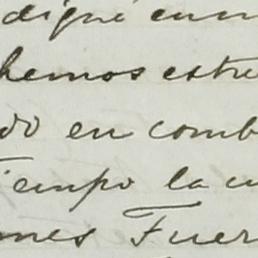 digné en un
hemos estre
do en comb
tiempo la cu
ones Fuer